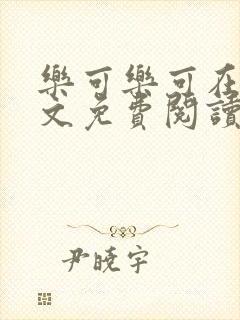 樂可樂可在
文免費閱讀
尹曉宇